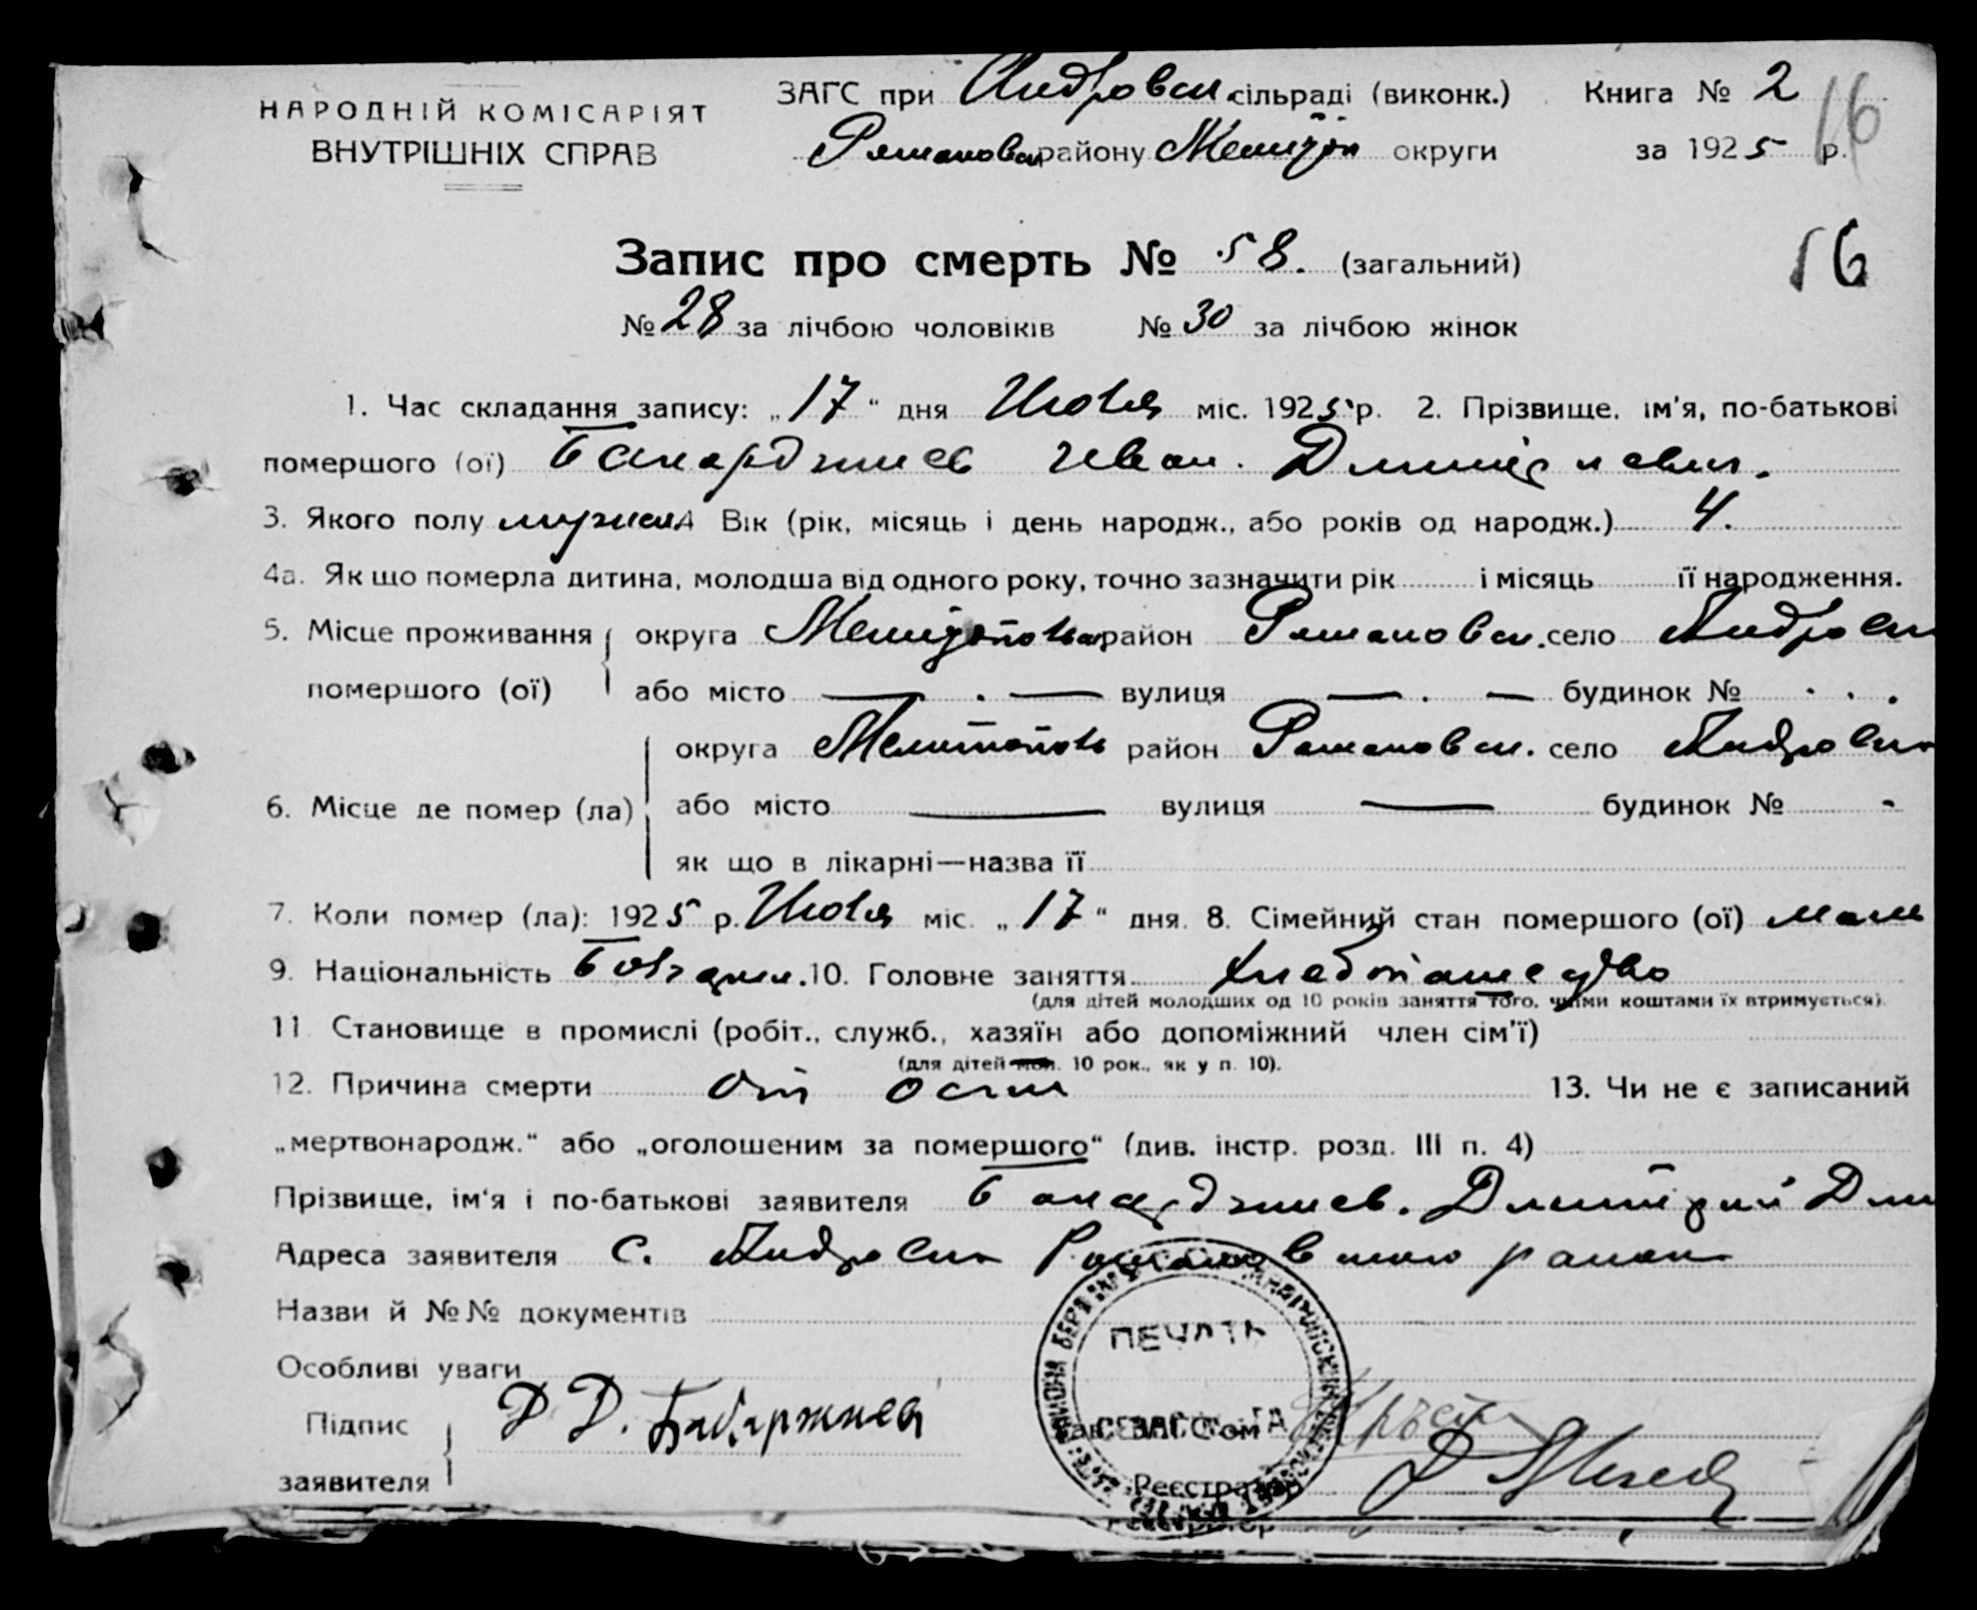 НАРОДНІЙ КОМІСАРІЯТ
ВНУТРІШНІХ СПРАВ
ЗАГС при Андровск. сільраді (виконк.)
Романовск району Мелитоп округи
Книга № 2
за 1925 р.
16
16
Запис про смерть № 58. (загальний)
№ 28 за лічбою чоловіків № 30 за лічбою жінок
1. Час складання запису: „17“ дня Июля міс. 1925 р. 2. Прізвище, ім'я, по-батькові
помершого (ої) Иван.
3. Якого полу мужск Вік (рік, місяць і день народж., або років од народж.) 4.
4а. Як що померла дитина, молодша від одного року, точно зазначити рік і місяць її народження.
5. Місце проживання помершого (ої) округа район Романовск. село Андровк
або місто — . — вулиця — . — будинок № . . .
6. Місце де помер (ла) округа Мелитополь район Романовск. село Андровка
або місто — вулиця — будинок № -
як що в лікарні—назва її
7. Коли помер (ла): 1925 р. Июля міс. „17“ дня. 8. Сімейний стан помершого (ої)
9. Національність 10. Головне заняття Хлебопашество
(для дітей молодших од 10 років заняття того, чиїми коштами їх втримується).
11. Становище в промислі (робіт., служб., хазяїн або допоміжний член сім'ї)
(для дітей мол. 10 рок., як у п. 10).
12. Причина смерти от оспи 13. Чи не є записаний
„мертвонародж.“ або „оголошеним за помершого“ (див. інстр. розд. III п. 4)
Прізвище, ім'я і по-батькові заявителя Дмитрий Дми
Адреса заявителя с. Андровка Романовского района
Назви й №№ документів
Особливі уваги
Підпис заявителя Д Д.
ПЕЧАТЬ
Зав. ЗАГС'ом
Реєстратор